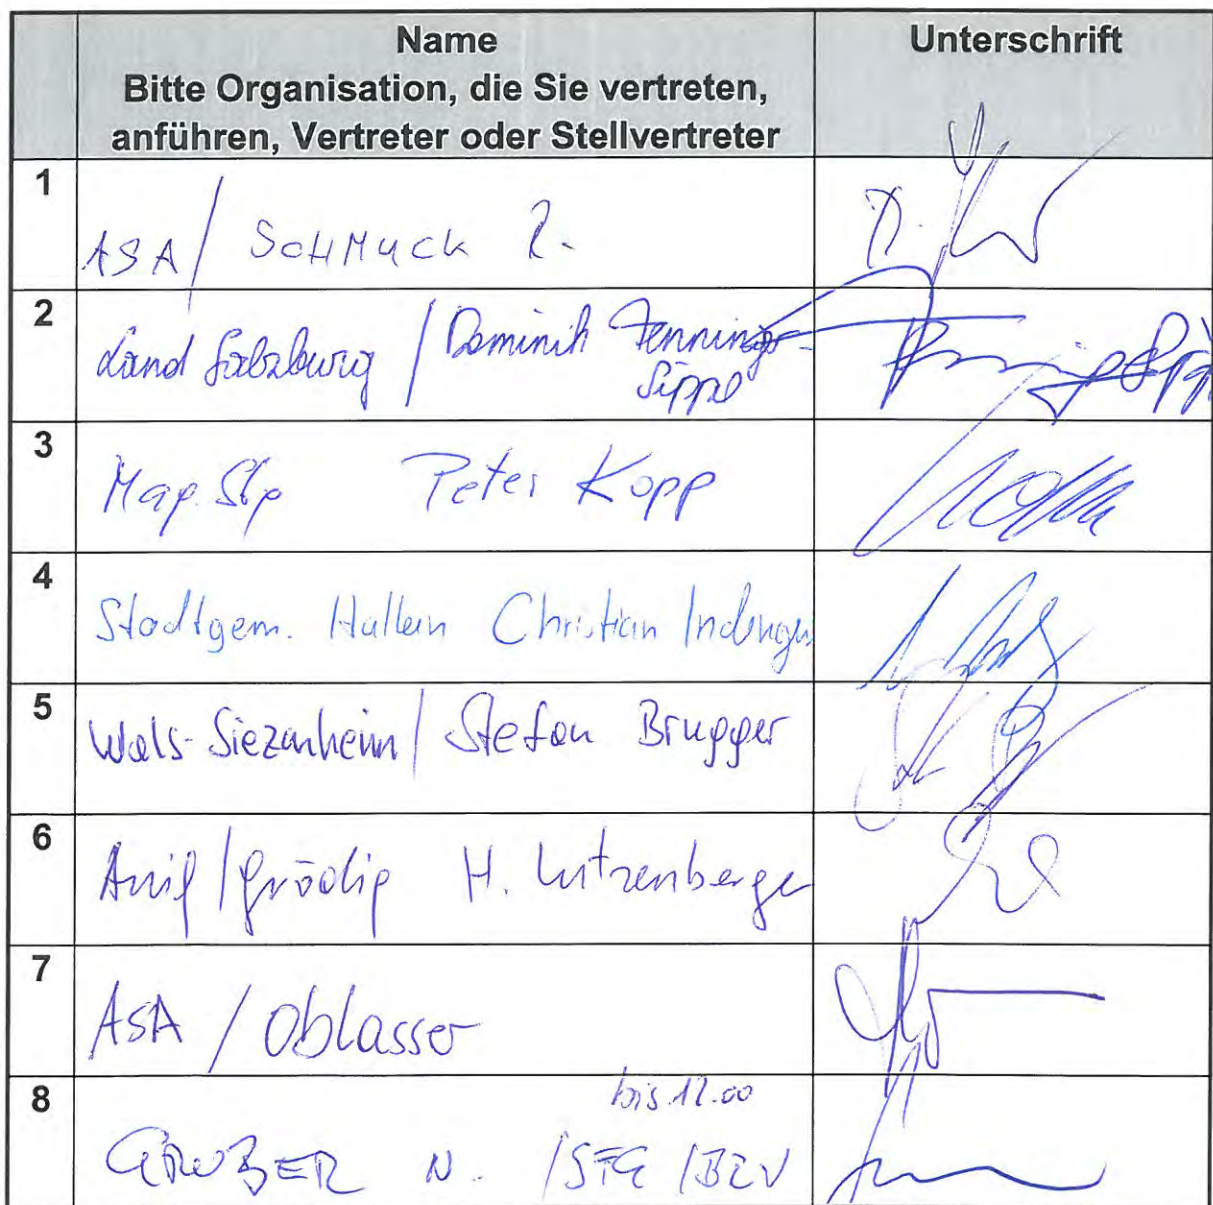 Name
Bitte Organisation, die Sie vertreten,
anführen, Vertreter oder Stellvertreter
Unterschrift
1
ASA / SCHMUCK R.
2
Land Salzburg / Dominik Jennings-
Sippel
3
Peter Kopp
4
Stadtgem. Hallein Christian
5
Wals-Siezenheim / Stefan Brugger
6
Anif / Grödig H. Lutzenberger
7
ASA / Oblasser
8
bis 12.00
GRUBER N. / /BZV